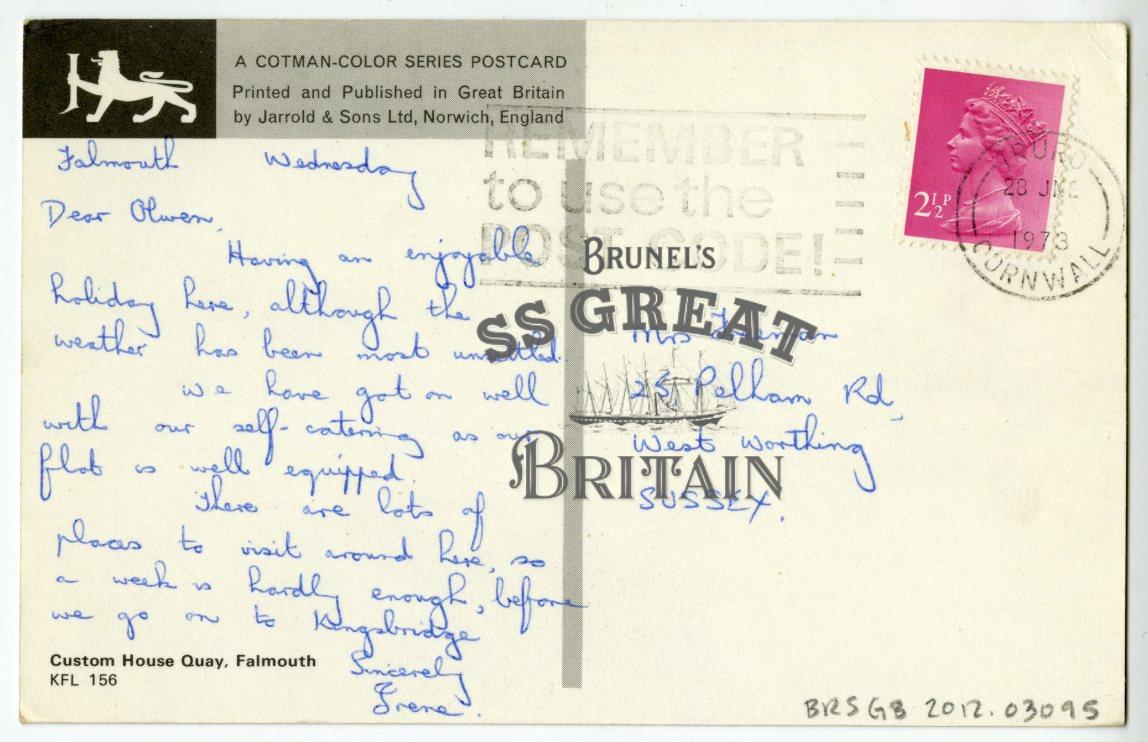 A COTMAN-COLOR SERIES POSTCARD
Printed and Published in Great Britain
by Jarrold & Sons Ltd, Norwich, England
REMEMBER
to use the
POST CODE!
2½P
TRURO
28 JNE
1973
CORNWALL
Falmouth Wednesday
Dear Olwen,
Having an enjoyable
holiday here, although the
weather has been most unsettled.
We have got on well
with our self-catering as our
flat is well equipped.
There are lots of
places to visit around here, so
a week is hardly enough, before
we go on to Kingsbridge
Sincerely
Irene.
Custom House Quay, Falmouth
KFL 156
BRUNEL'S
SS GREAT
BRITAIN
Mrs
25, Pelham Rd,
West Worthing
SUSSEX.
BRSGB 2012.03095